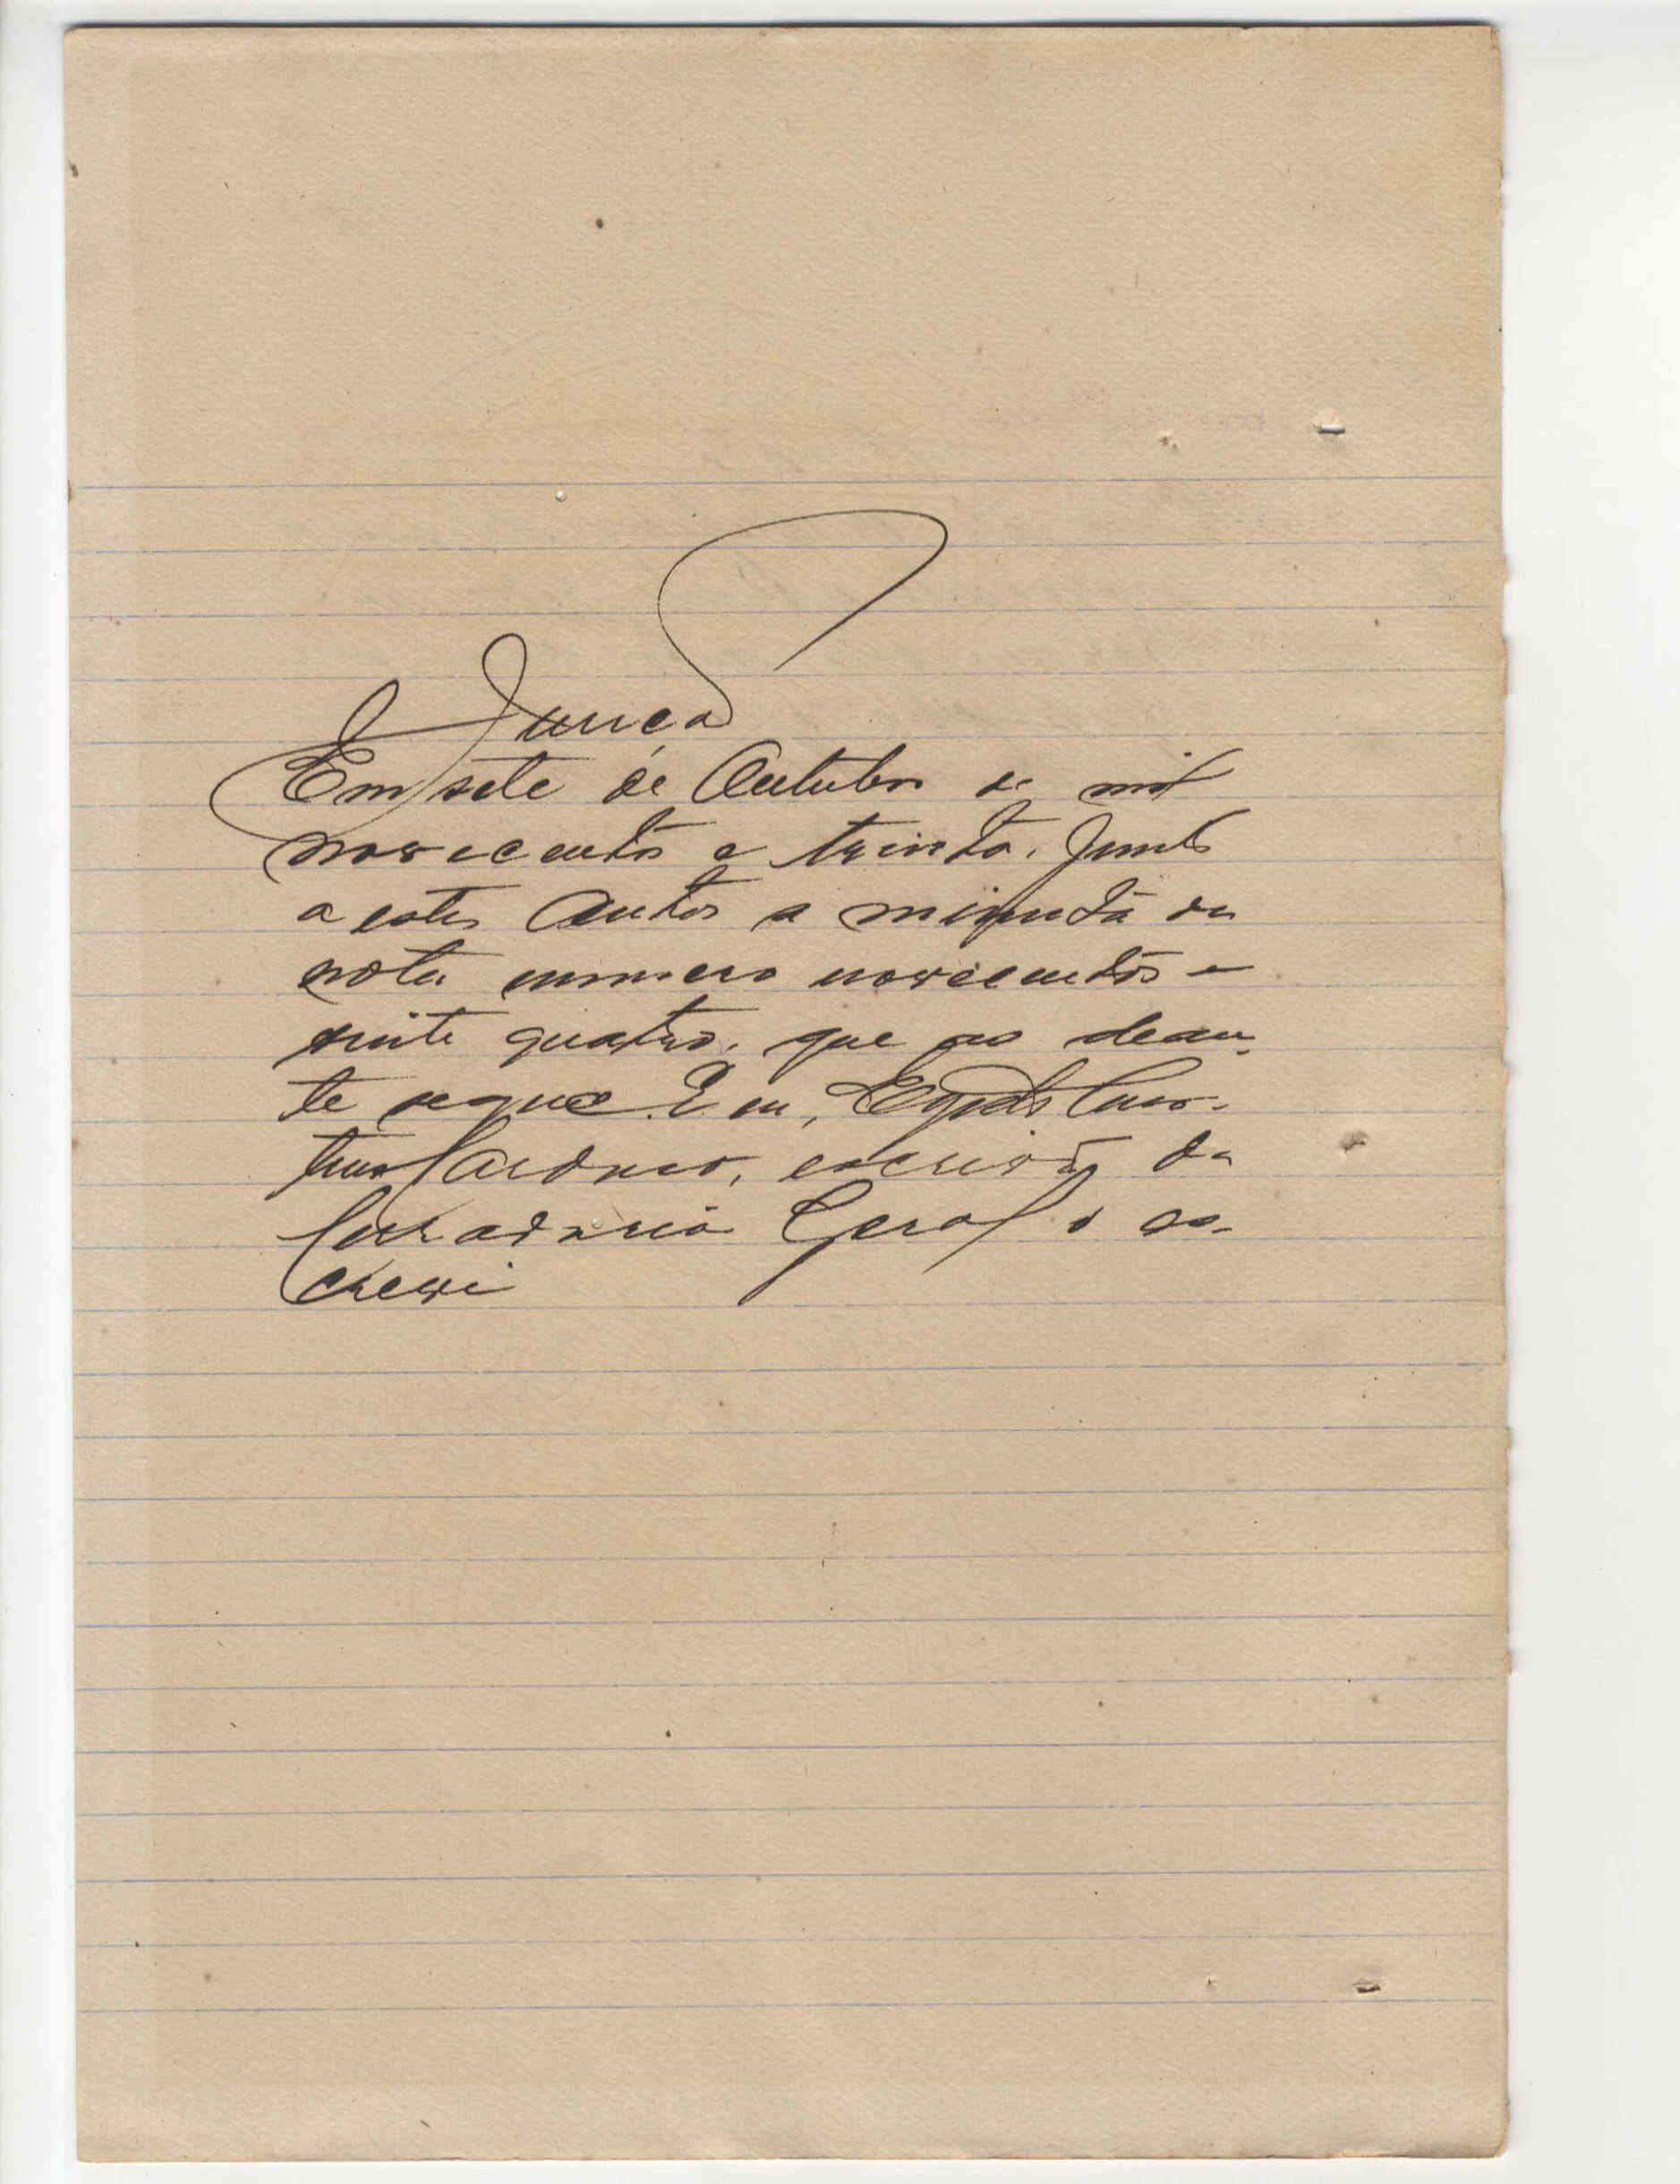 Junção
Em sete de Outubro de mil
novecentos e trinta, Junto
a estes Autos a minuta da
nota numero novecentos e
vinte quatro, que ao dean-
te segue. Eu,
Cardoso, escrivão da
Curadoria Geral o es-
crevi